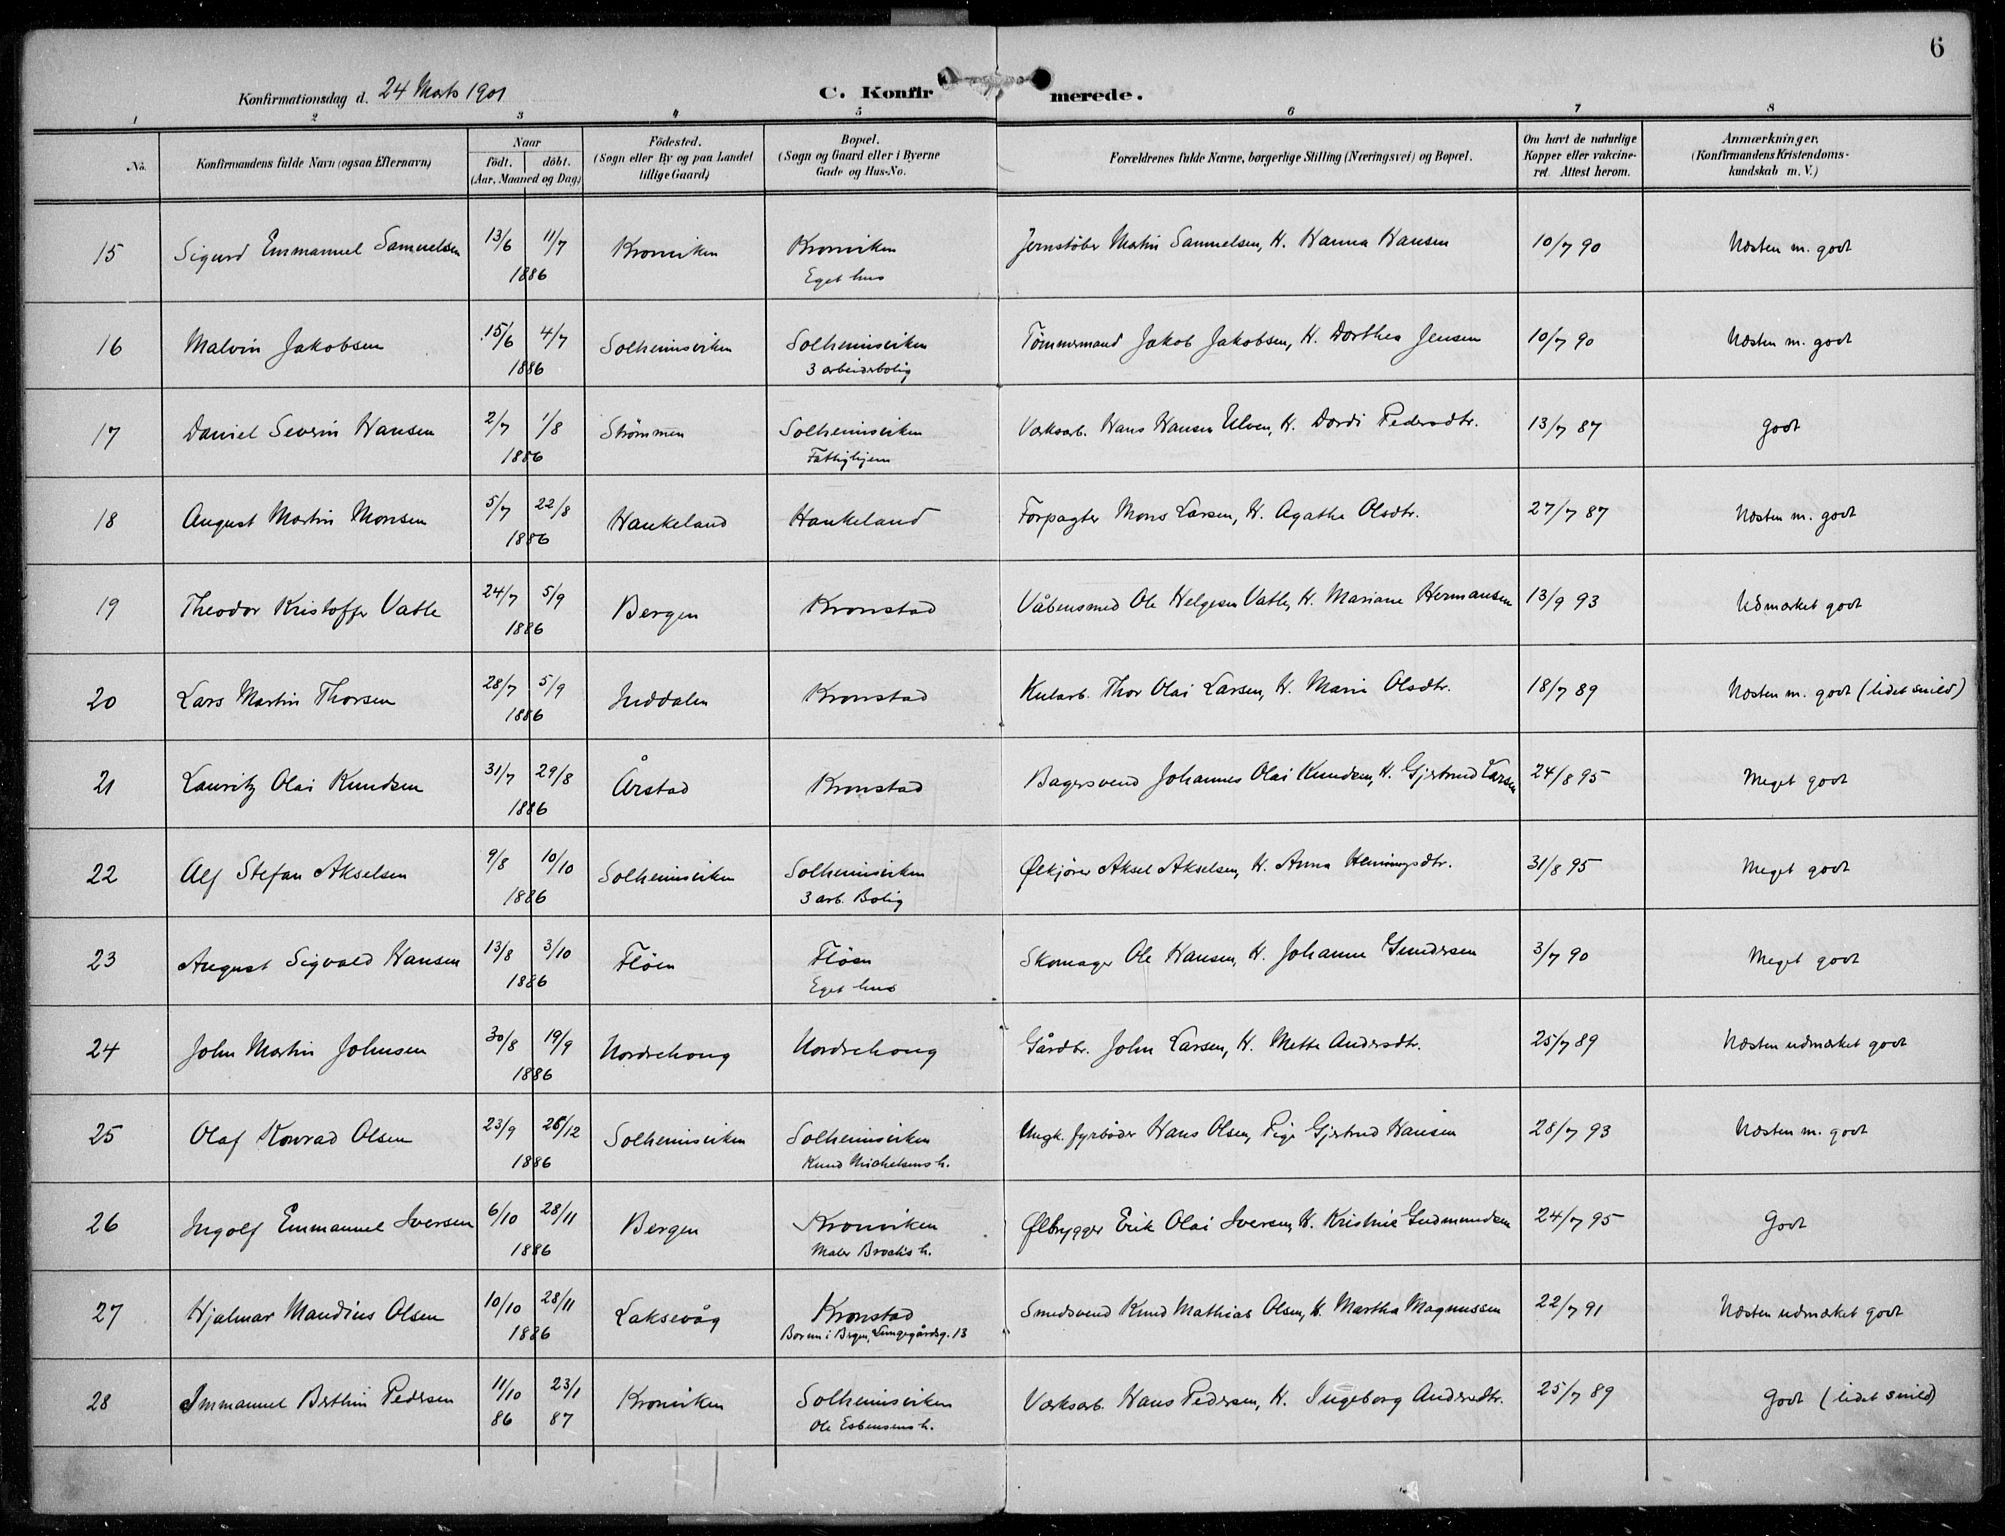 6
Konfirmationsdag d. 24 Marts 1901
C. Konfirmerede.
1 2 3 4 5 6 7 8
No. | Konfirmandens fulde Navn (ogsaa Efternavn) | Naar födt. döbt. (Aar, Maaned og Dag) | Födested. (Sogn eller By og paa Landet tillige Gaard) | Bopæl. (Sogn og Gaard eller i Byerne Gade og Hus-No. | Forældrenes fulde Navne, borgerlige Stilling (Næringsvei) og Bopæl. | Om havt de naturlige Kopper eller vakcineret. Attest herom. | Anmærkninger, (Konfirmandens Kristendomskundskab m. V.)
15 Sigurd Emmanuel Samuelsen 13/6 11/7 Kronviken Kronviken Jernstøber Martin Samuelsen, H. Hanna Hansen 10/7 90 Næsten m. godt
1886 Eget hus
16 Malvin Jakobsen 15/6 4/7 Solheimsviken Solheimsviken Tømmermand Jakob Jakobsen, H. Dorthea Jensen 10/7 90 Næsten m. godt
1886 3 arbeiderbolig
17 Daniel Severin Hansen 2/7 1/8 Strømmen Solheimsviken Værksarb. Hans Hansen Ulven, H. Dordi Pedersdtr. 13/7 87 Godt
1886 Fattighjem
18 August Martin Monsen 5/7 22/8 Haukeland Haukeland Forpagter Mons Larsen, H. Agathe Olsdtr. 27/7 87 Næsten m. godt
1886
19 Theodor Kristoffer Vatle 24/7 5/9 Bergen Kronstad Våbensmed Ole Helgesen Vatle, H. Mariane Hermansen 13/9 93 Udmærket godt
1886
20 Lars Martin Thorsen 28/7 5/9 Inddalen Kronstad Kularb. Thor Olai Larsen, H. Marie Olsdtr. 18/7 89 Næsten m. godt (lidet snild)
1886
21 Lauritz Olai Knudsen 31/7 29/8 Årstad Kronstad Bagersvend Johannes Olai Knudsen, H. Gjertrud Larsen 24/8 95 Meget godt
1886
22 Alf Stefan Akselsen 9/8 10/10 Solheimsviken Solheimsviken Ølkjører Aksel Akselsen, H. Anna Henningsdtr. 31/8 95 Meget godt
1886 3 arb. Bolig
23 August Sigvald Hansen 13/8 3/10 Fløen Fløen Skomager Ole Hansen, H. Johanne Gundersen 3/7 90 Meget godt
1886 Eget hus
24 John Martin Johnsen 30/8 19/9 Nordrehoug Nordrehoug Gårdbr. John Larsen, H. Mette Andersdtr. 25/7 89 Næsten udmærket godt
1886
25 Olaf Konrad Olsen 23/9 26/12 Solheimsviken Solheimsviken Ungk. fyrbøder Hans Olsen, Pige Gjertrud Hansen 28/7 93 Næsten m. godt
1886 Knud Michelsens h.
26 Ingolf Emmanuel Iversen 6/10 28/11 Bergen Kronviken Ølbrygger Erik Olai Iversen, H. Kristine Gudmundsen 24/7 95 Godt
1886 Maler Brochs h.
27 Hjalmar Mandius Olsen 10/10 28/11 Laksevåg Kronstad Smedsvend Knud Mathias Olsen, H. Martha Magnussen 22/7 91 Næsten udmærket godt
1886 Bor nu i Bergen, Lungegårdsg. 13
28 Immanuel Berthin Pedersen 11/10 23/1 Kronviken Solheimsviken Værksarb. Hans Pedersen, H. Ingeborg Andersdtr. 25/7 89 Godt (lidet snild)
86 87 Ole Esbensens h.